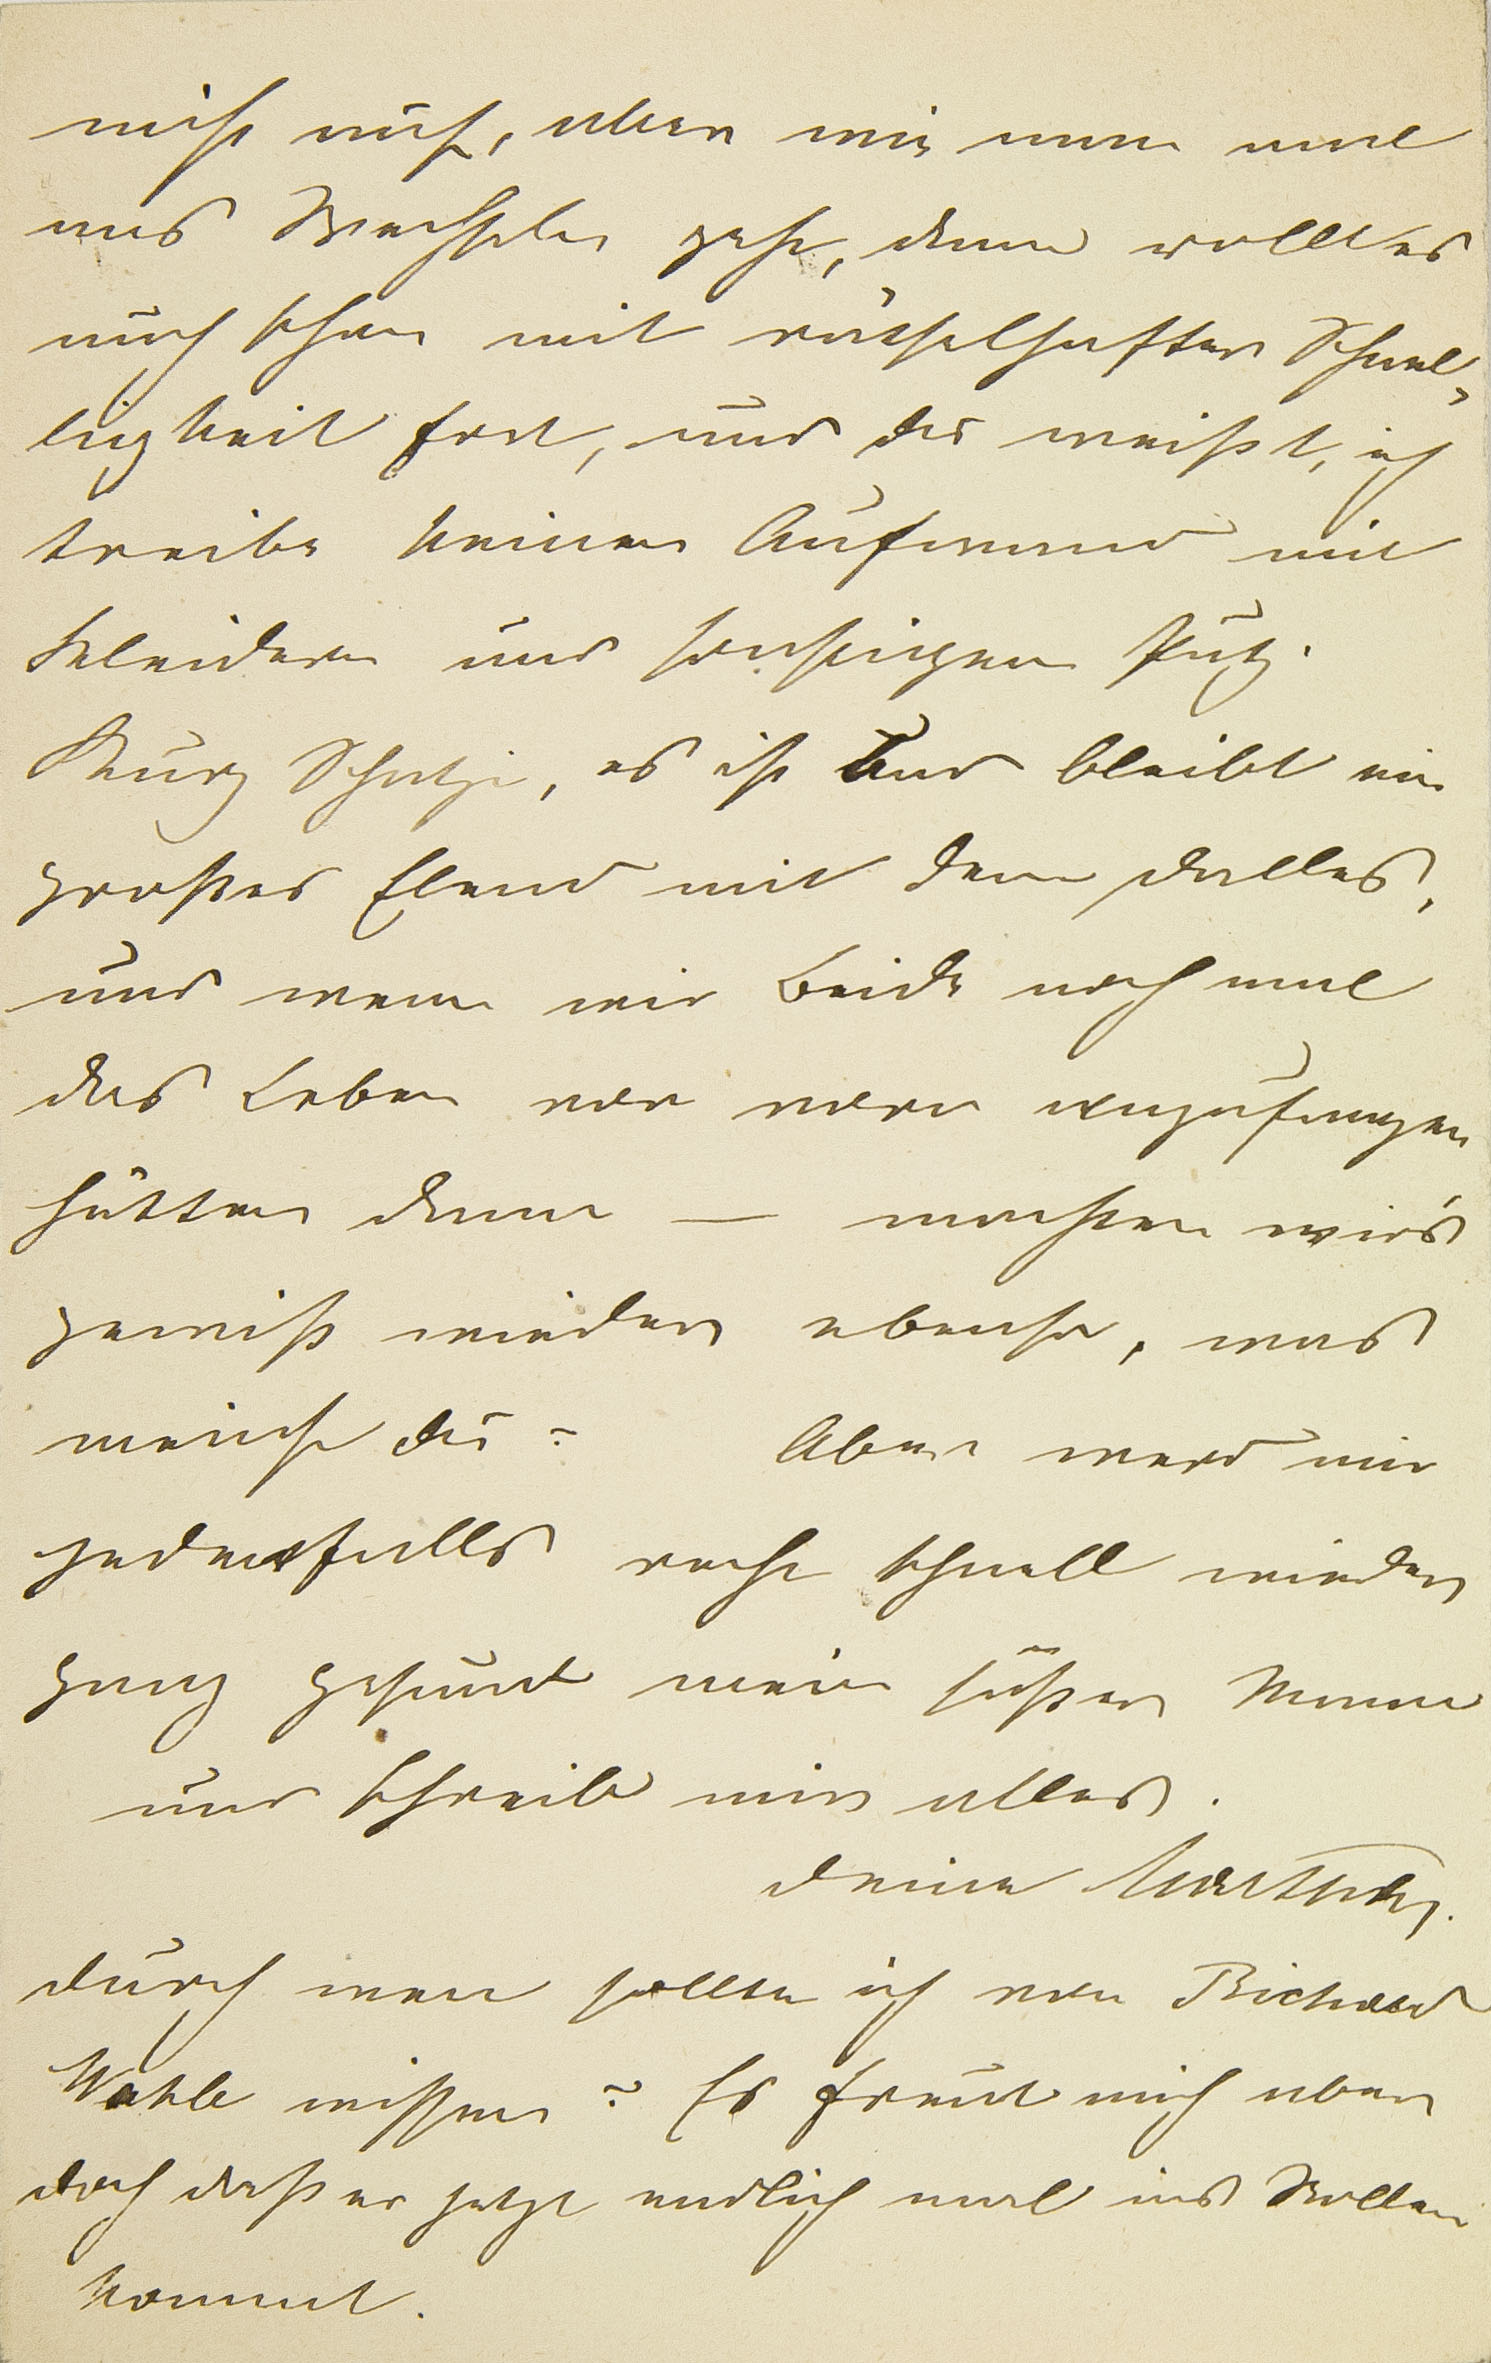 nicht auf, aber wie nun mal
ans Wechseln geht, dann rollt es
auch schon mit rätselhafter Schnel-
ligkeit fort, und du weißt, ich
treibe keinen Aufwand mit
Kleidern und sonstigen Putz.
Kurz Schatzi, es ist und bleibt ein
großes Elend mit dem Dalles,
und wenn wir Beide noch mal
das Leben von vorn anzufangen
hätten dann — machten wir's
gewiß wieder ebenso, was
meinst du?    Aber werd mir
jedenfalls recht schnell wieder
ganz gesund mein süßer Mann
und schreib mir alles.
deine
durch wen sollte ich von Richard
Wahle wissen? Es freut mich aber
doch daß er jetzt endlich mal ins Rollen
kommt.